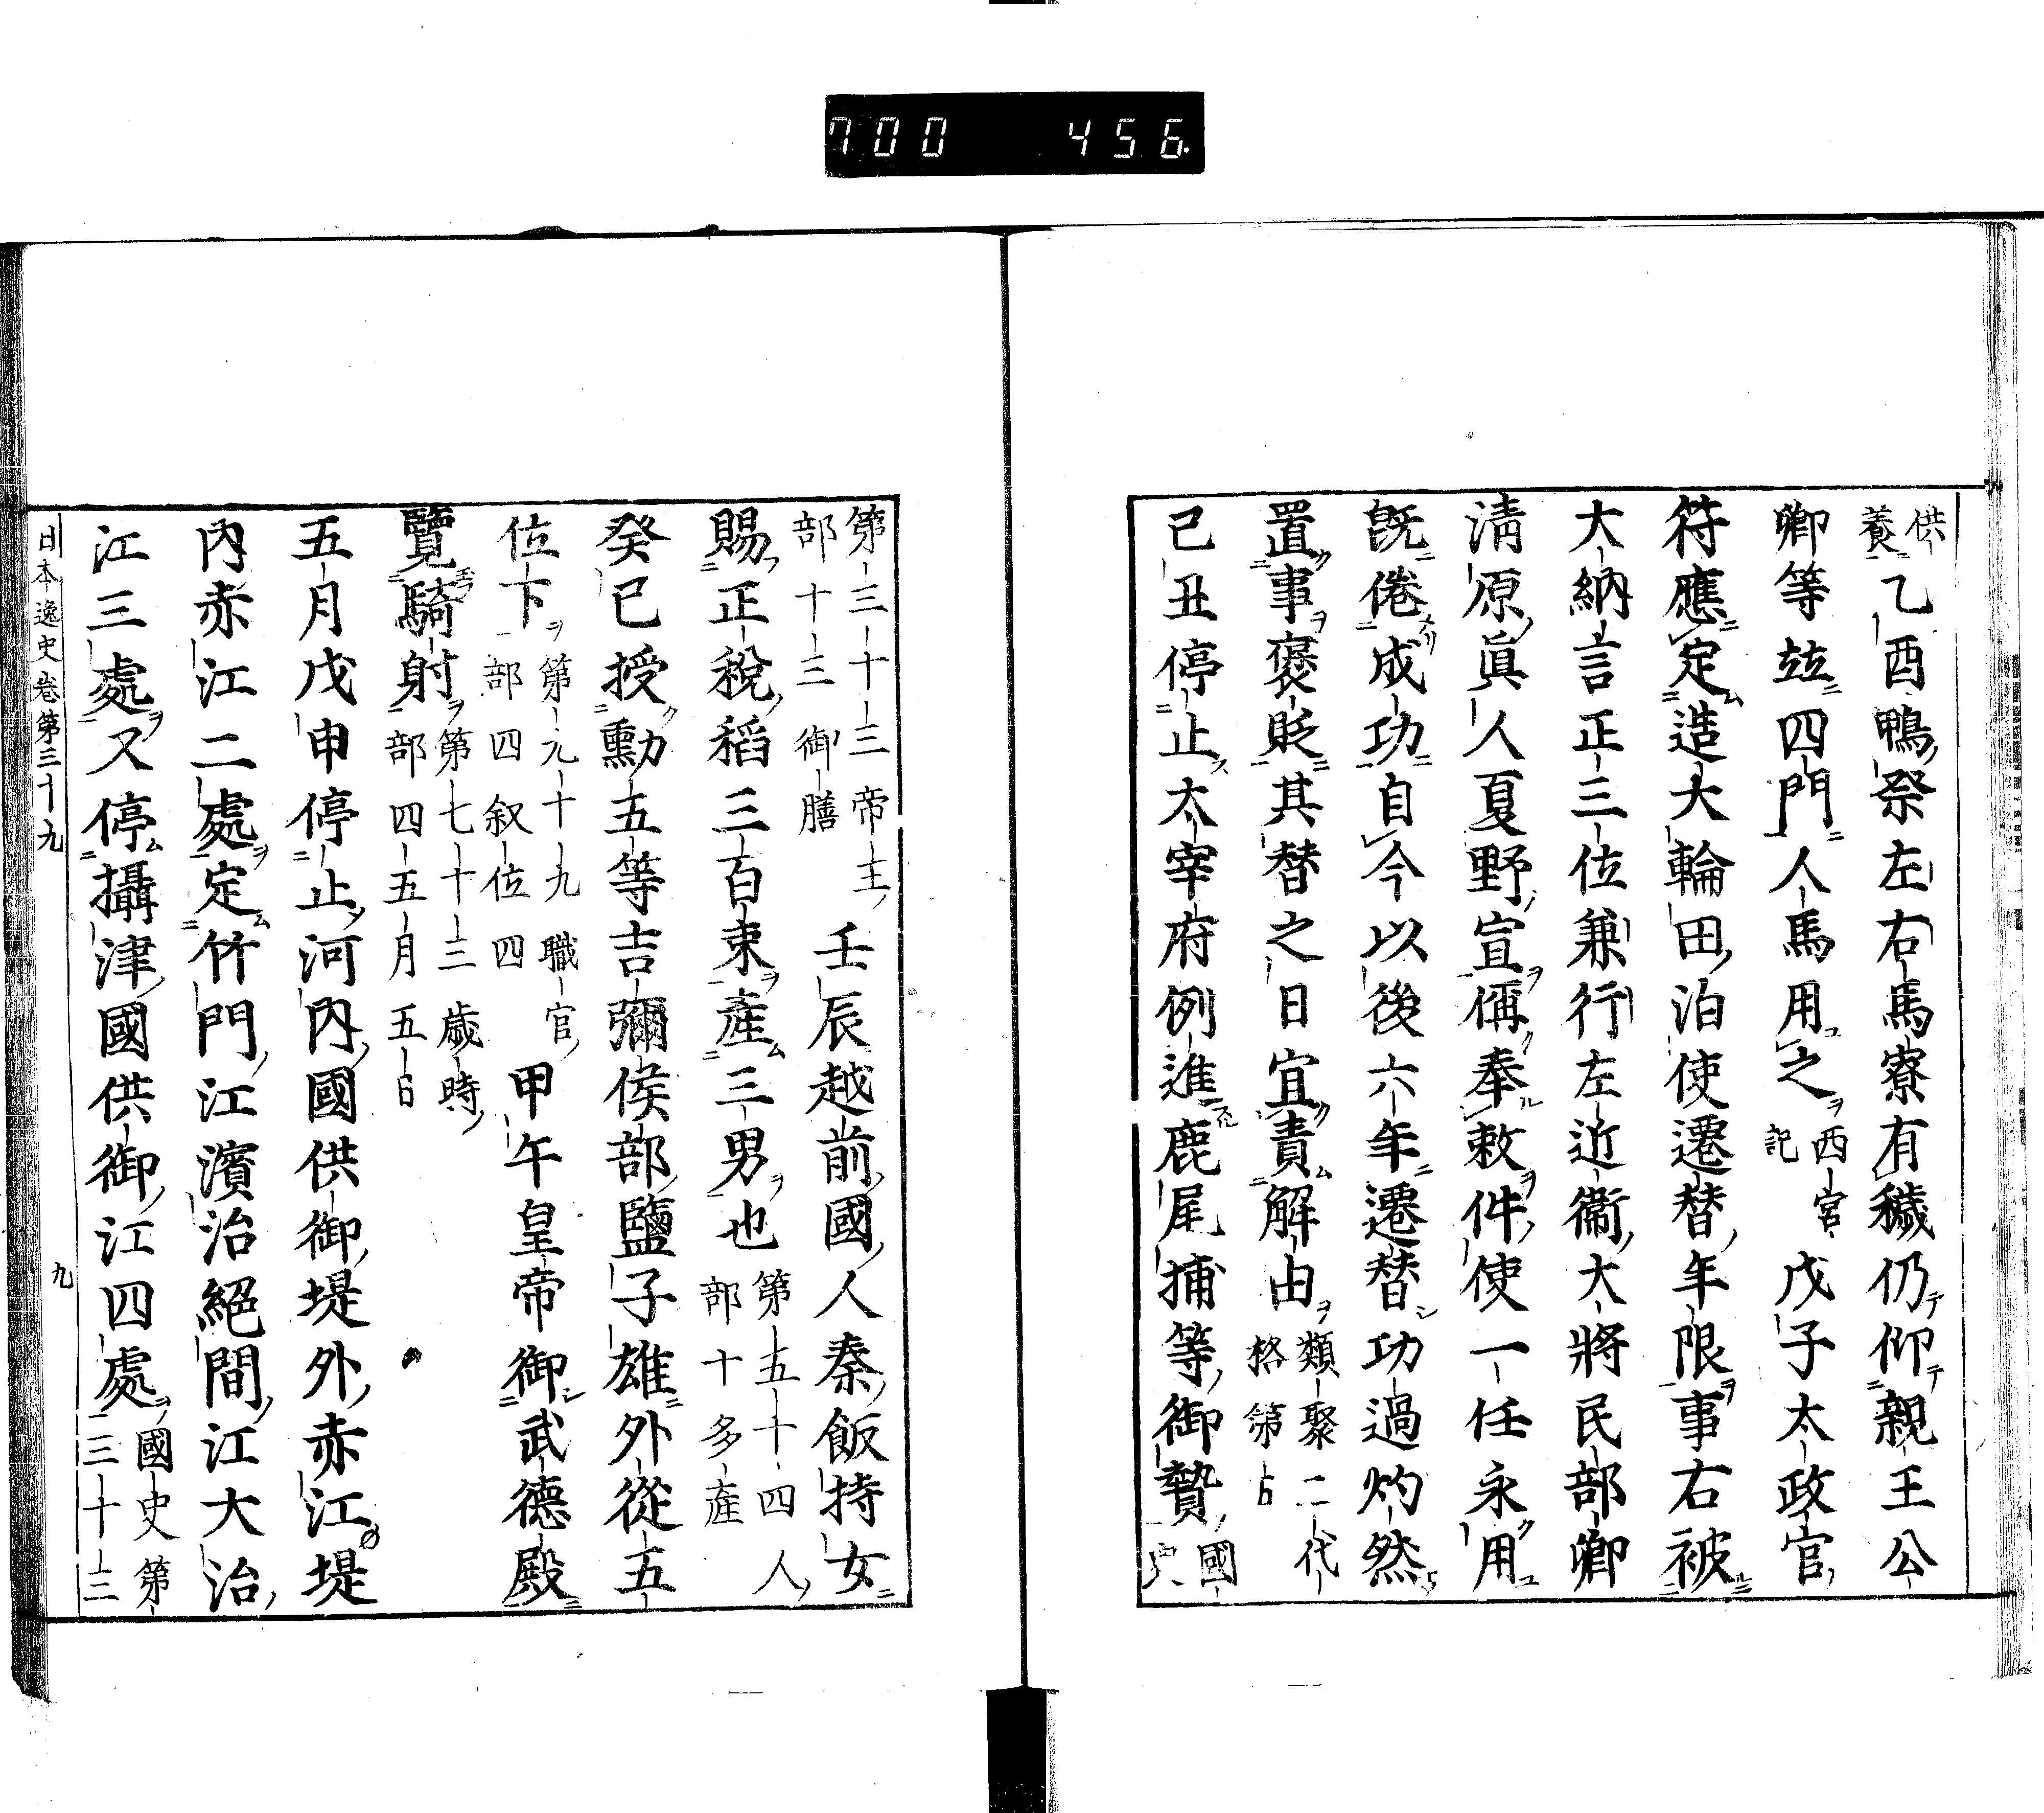 700 456
供養乙酉鴨祭左右馬寮有穢仍仰親王公
卿等竝四門人馬用之西宮記戊子太政官
符應定造大輪田泊使遷替年限事右被
大納言正三位兼行左近衞大將民部卿
淸原眞人夏野宣偁奉敕件使一任永用
旣倦成功自今以後六年遷替功過灼然
置事褒貶其替之日宜責解由類聚二代格第
己丑停止太宰府例進鹿尾捕等御贄國史
第三十三帝王部十三御膳壬辰越前國人秦飯持女
賜正稅稻三百束產三男也第五十四人部十多產
癸已授勳五等吉彌侯部鹽子雄外從五
位下第九十九職官部四叙位四甲午皇帝御武德殿
覽騎射第七十三歲時部四五月五日
五月戊申停止河內國供御堤外赤江堤
內赤江二處定竹門江濱治絕間江大治
江三處又停攝津國供御江四處國史第三十三
日本逸史卷第三十九
九